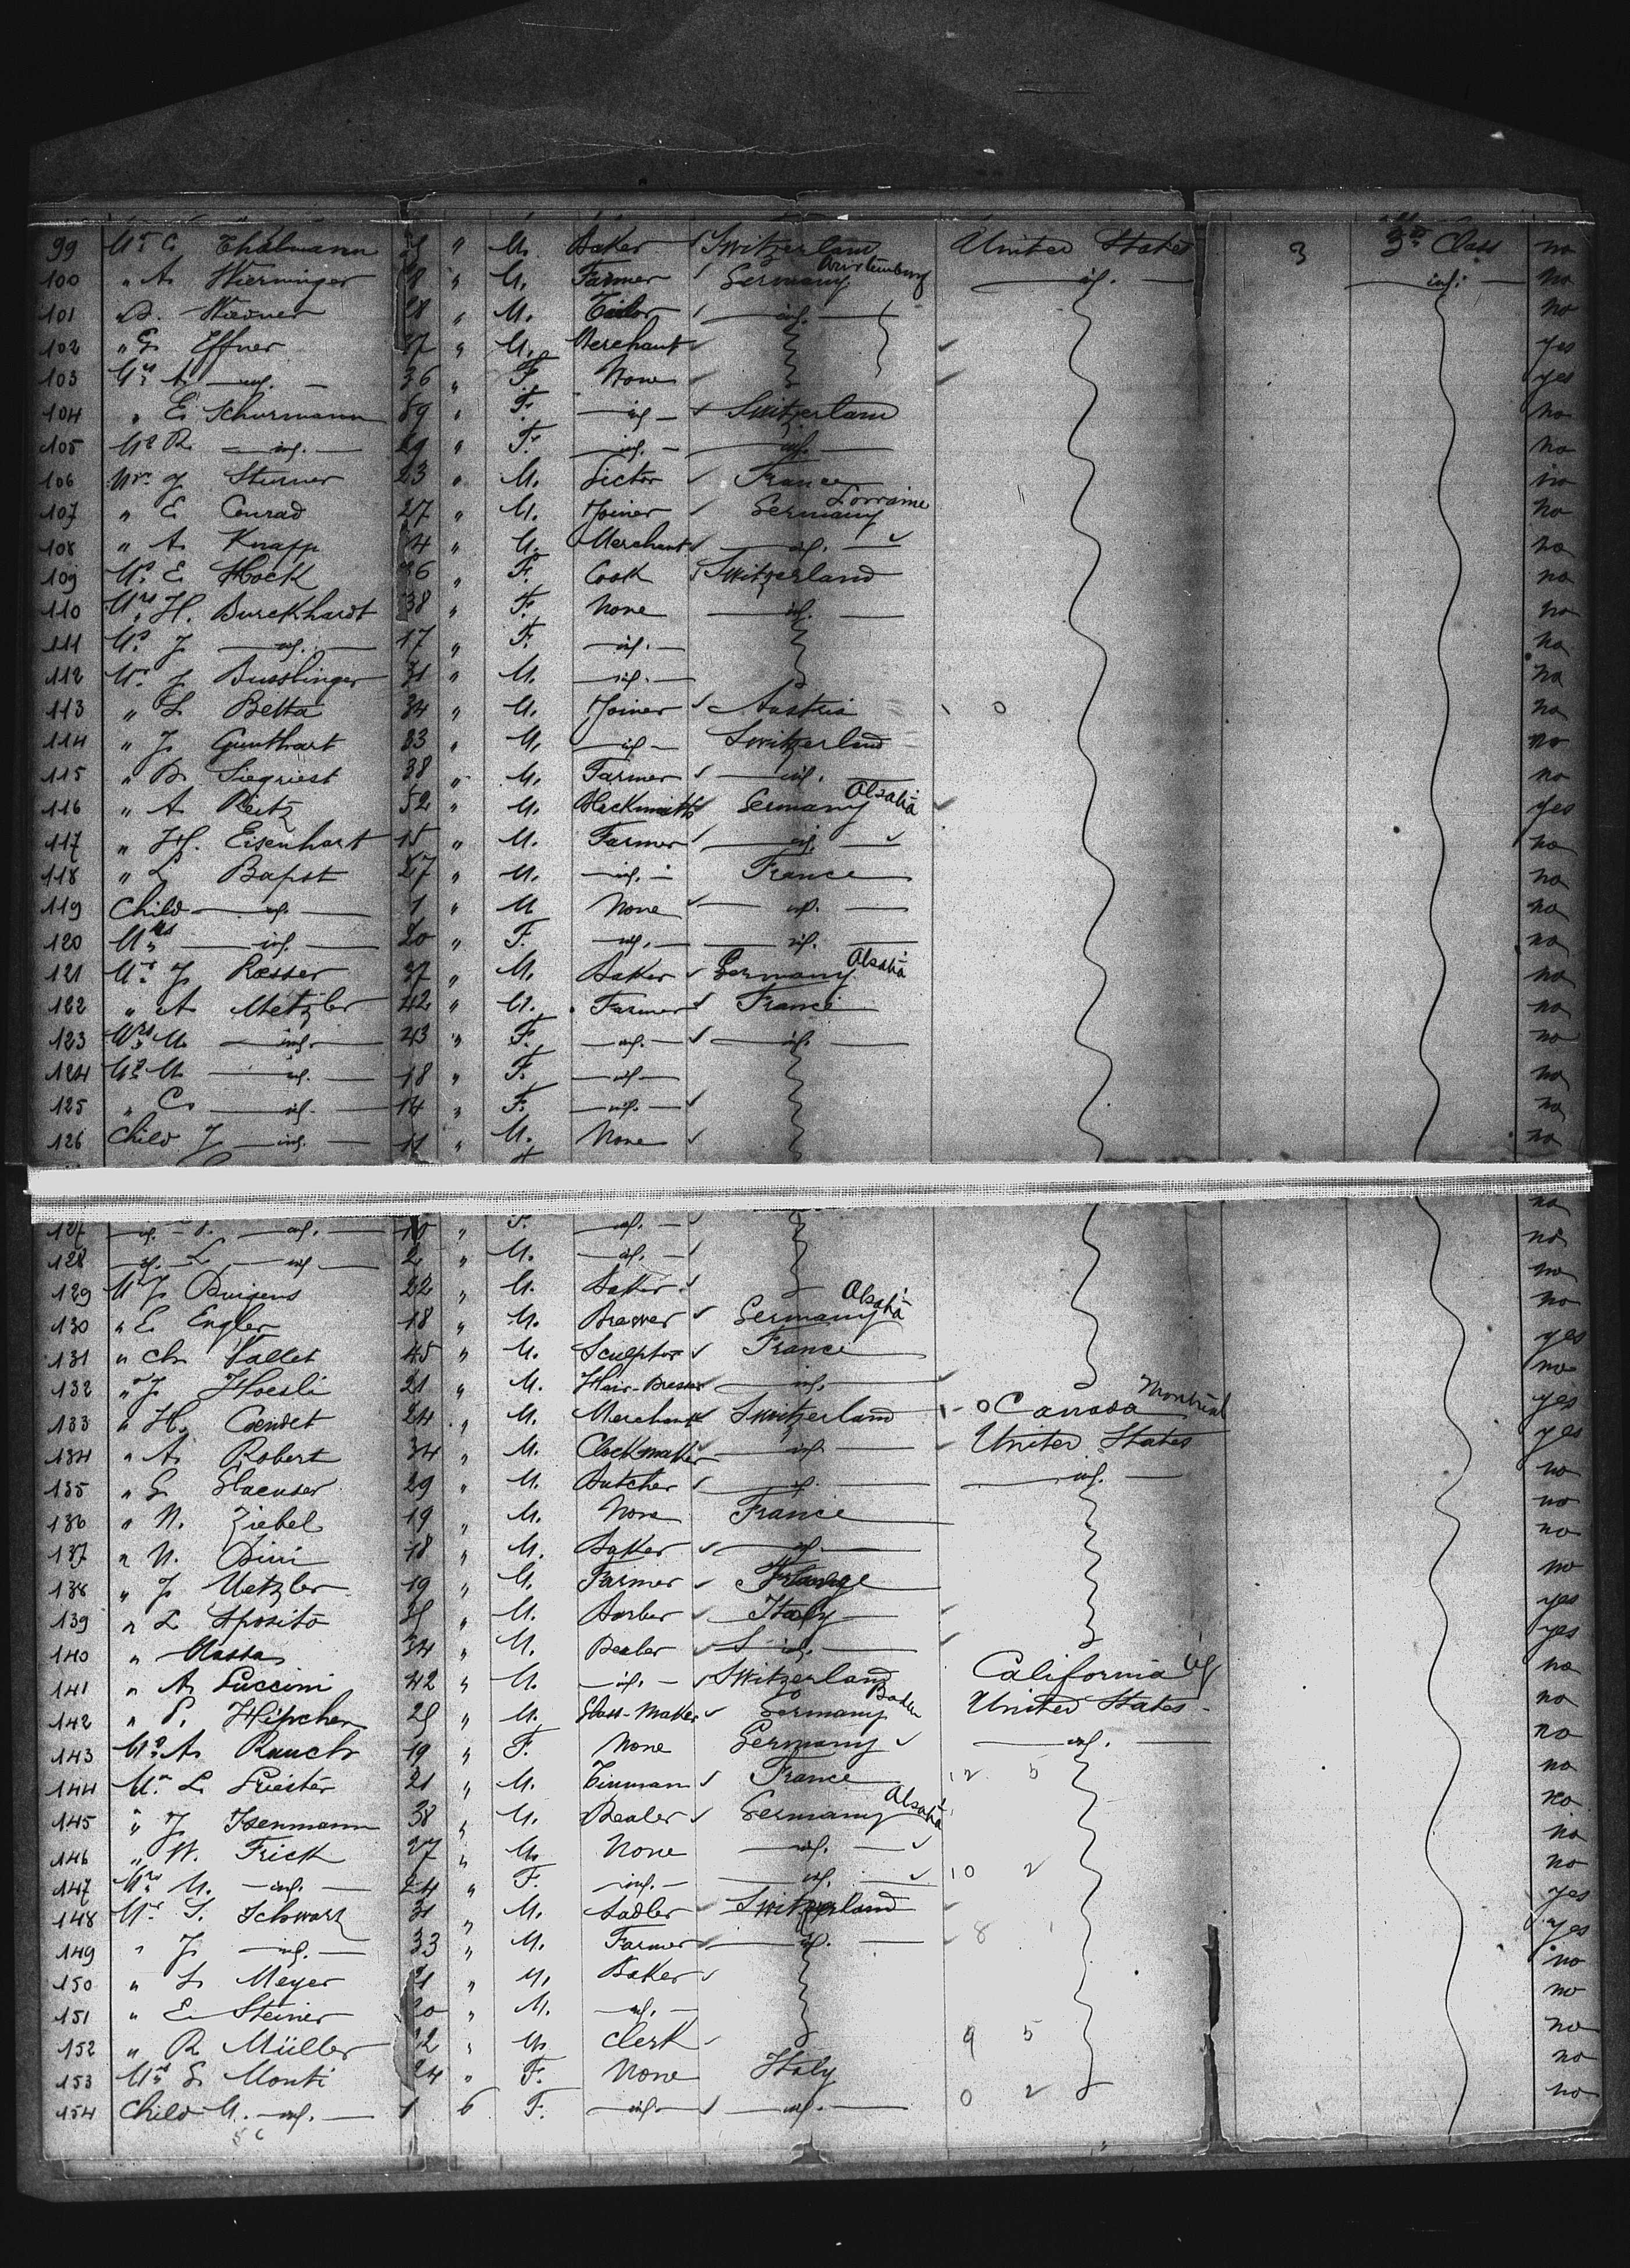 99 Mr C. Thalmann " M. Baker Switzerland United States 3 3rd Class no
100 " A. Wierminger 28 " M. Farmer Germany Wurtemburg id. id. no
101 " D. Wiesner 28 " M. Tailor id. no
102 " G Effner 37 " M. Merchant yes
103 Mrs A. id. 36 " F. None yes
104 " E. Schurmann 59 " F. id. Switzerland no
105 Ms R. id. 29 " F. id. id. no
106 Mr J Sturner 23 " M. France no
107 " E Conrad 27 " M. Joiner Germany Lorraine no
108 " A. Knapp " M. Merchant id. no
109 Ms E Hock 26 " F. Cook Switzerland no
110 Mrs H. Burckhardt 38 " F. None id. no
111 Ms J id. 17 " F. id. no
112 Mr J Busslinger 31 " M. id. no
113 " L Betta 34 " M. Joiner Austria 0 no
114 " J. Gunthart 33 " M. id. Switzerland no
115 " B. Siegriest 38 " M. Farmer id. no
116 " A Reitz 52 " M. Blacksmith Germany Alsatia yes
117 " H. Eisenhart 15 " M. Farmer id. no
118 " L Bapst 27 " M. id. France no
119 Child id. 1 " M None id. no
120 Mrs id. 20 " F. id. id. no
121 Mr J Rosser 37 " M. Baker Germany Alsatia no
122 " A Metzler 42 " M. Farmer France no
123 Mrs M. id. 43 " F. id. id. no
124 Ms M id. 18 " F. id. no
125 " C. id. 14 " F. id. no
126 Child J id. 11 " M. None no
127 id. id. 10 " F. id. no
128 id. L id. 2 " M. id. no
129 Mr J. 22 " M. Baker no
130 " E Engler 18 " M. Brewer Germany Alsatia no
131 " Ch. Vallet 45 " M. Sculptor France yes
132 " J. Hoesli 21 " M. Hair-Dresser id. no
133 " H. Cendet 24 " M. Merchant Switzerland 0 Canada Montreal yes
134 " A. Robert 34 " M. Clockmaker id. United States yes
135 " G. Haeuser 29 " M. Butcher id. id. no
136 " N. Ziebel 19 " M. None France no
137 " N. Dini 18 " M. Baker id. no
138 " J. Metzler 19 " M. Farmer France no
139 " L Sposito " M. Barber Italy yes
140 " Massa 34 " M. Dealer id. yes
141 " A. Luccini 42 " M. id. Switzerland California no
142 " P. Hipchen " M. Glass-Maker Germany Baden United States no
143 Ms A. Rauch 19 " F. None Germany id. no
144 Mr L. Priester 21 " M. Tinmann France 12 5 no
145 " J Isenmann 38 " M. Dealer Germany Alsatia no
146 " W. Frick 27 " M. None id. no
147 Mrs M. id. 24 " F. id. id. 10 2 no
148 Mr S. Schwarz 31 " M. Sadler Switzerland yes
149 " J. id. 33 " M. Farmer id. 8 yes
150 " L Meyer 21 " M. Baker no
151 " E. Steiner 20 " M. id. no
152 " R Müller 22 " M. Clerk 9 5 no
153 Mrs G. Monti 24 " F. None Italy no
154 Child M. id. 1 6 F. id. id. 0 2 no